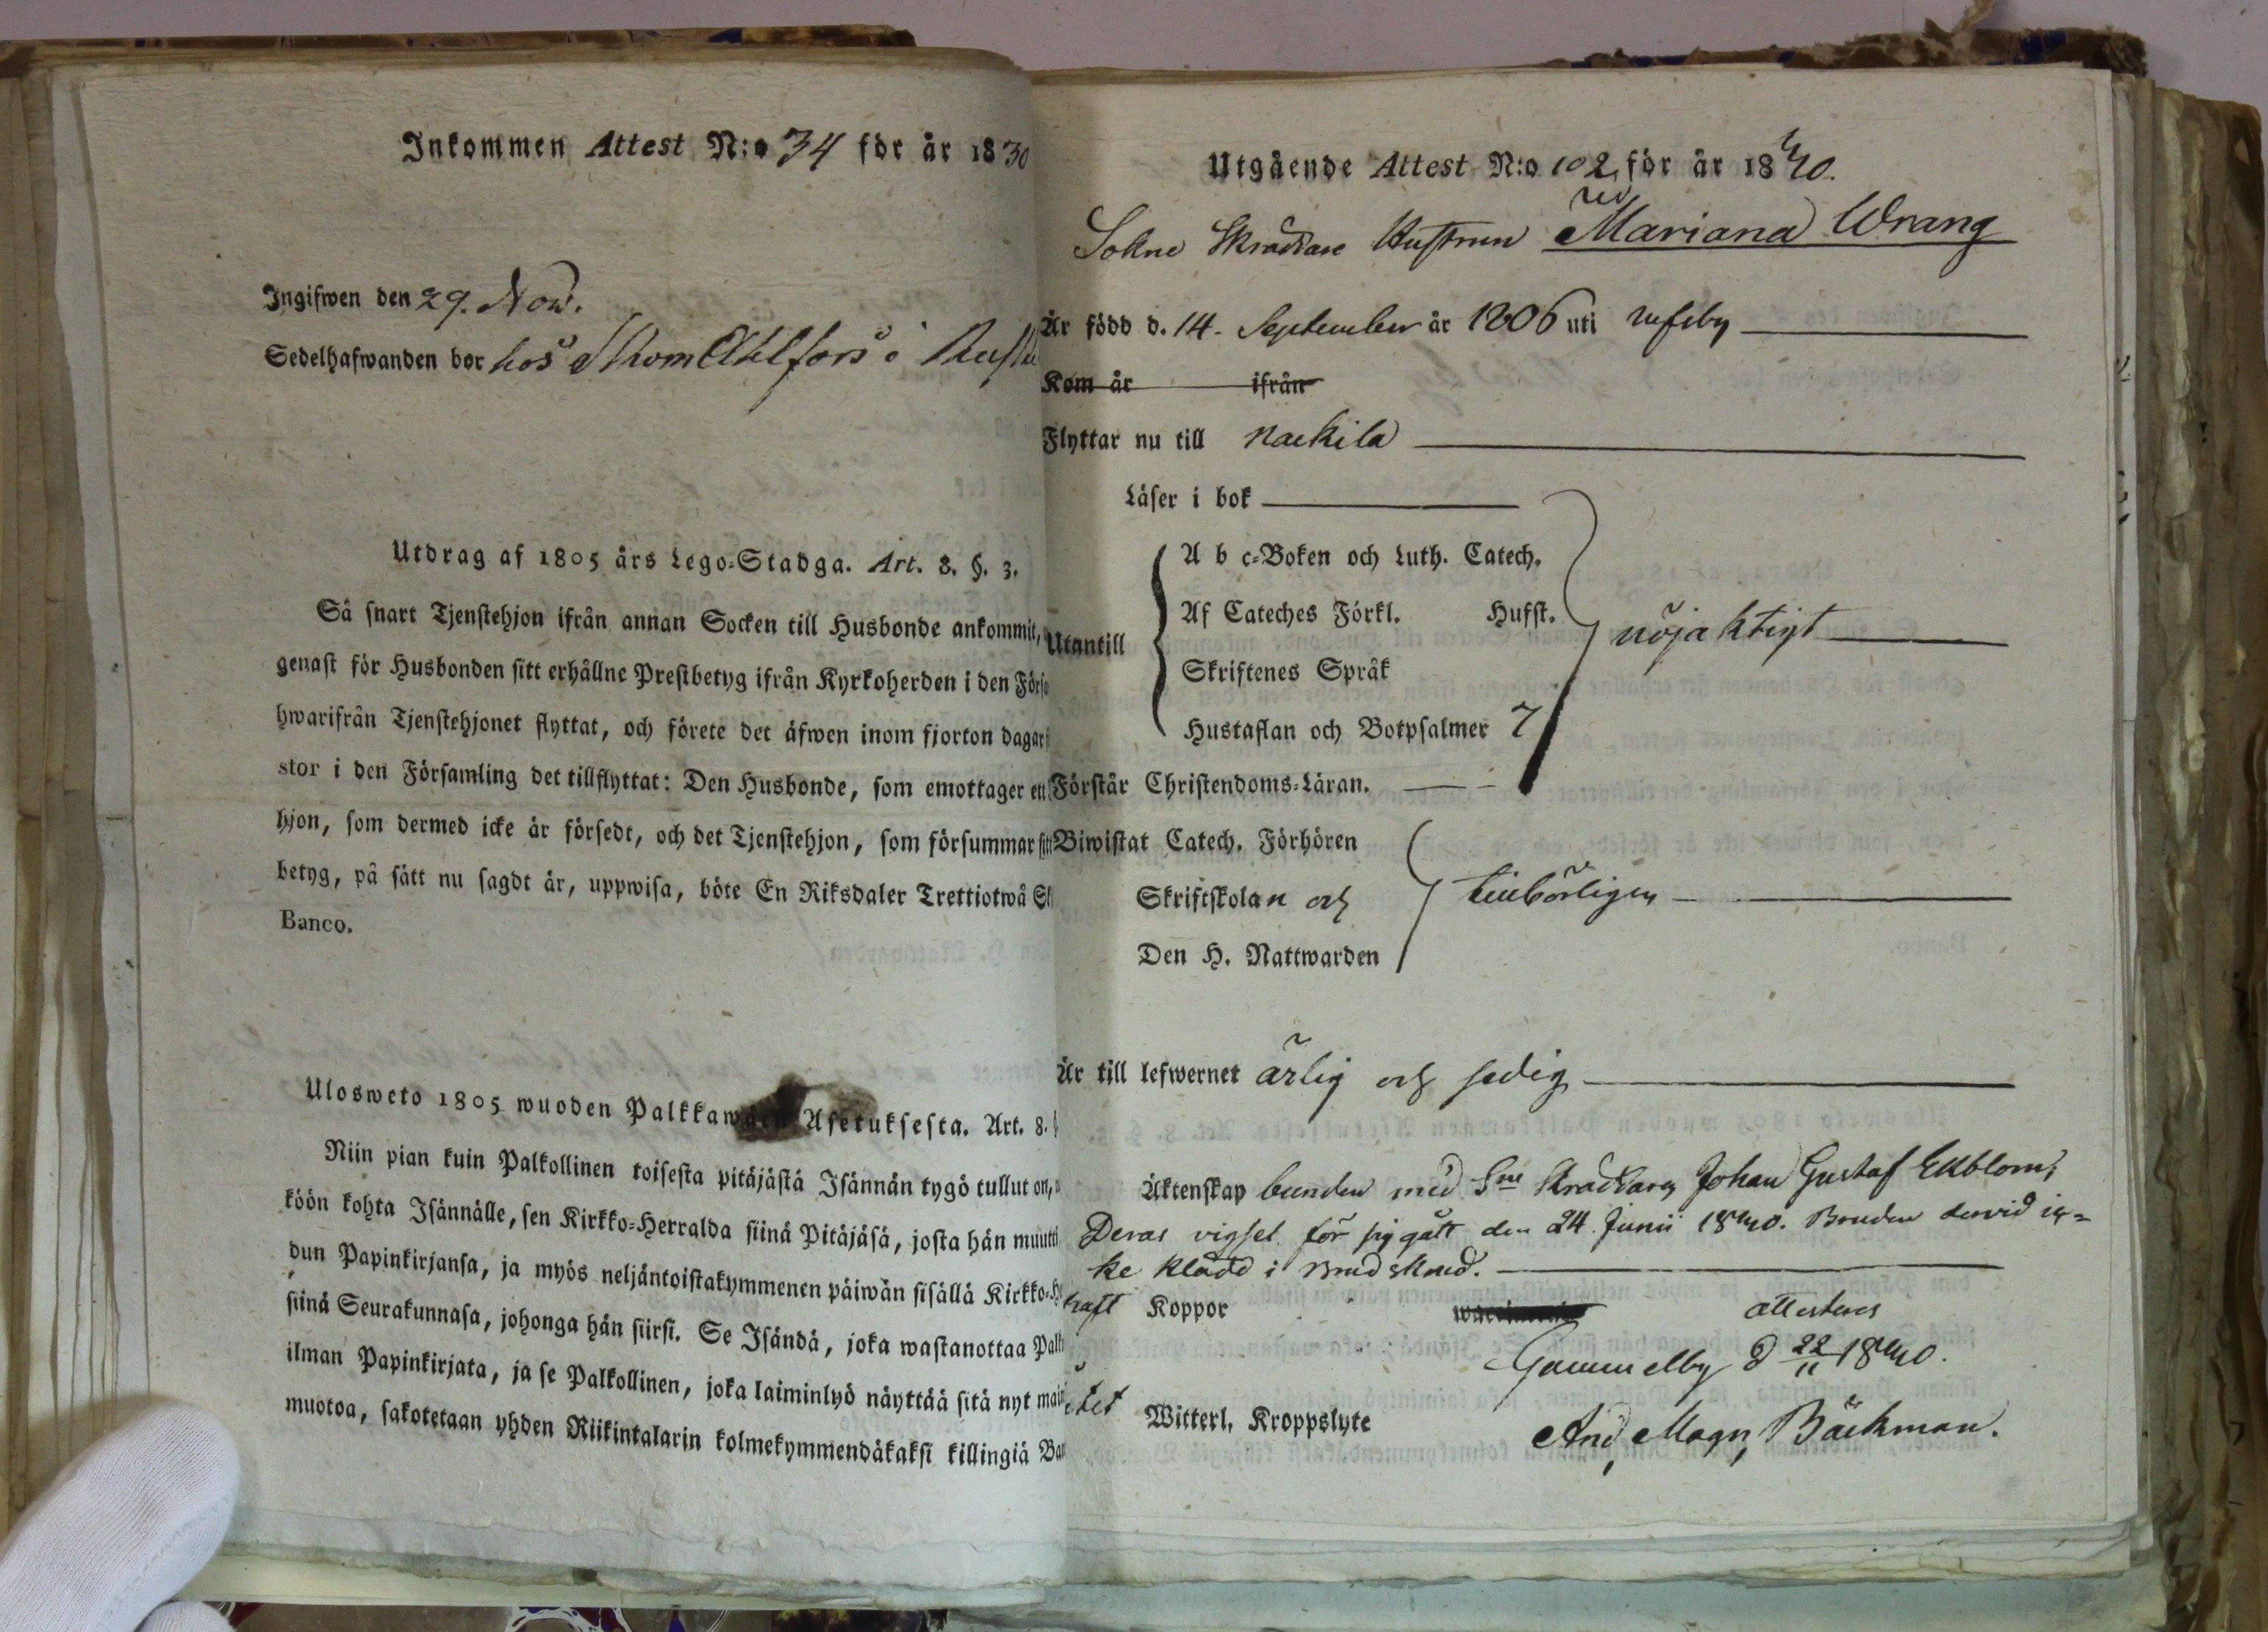 Inkommen Attest N:o 34 för år 1830
Ingifwen den 29. Now.
Sedelhafwanden bor hos Skom Ahlfors i
Utdrag af 1805 års Lego-Stadga. Art. 8. §. 3.
Så snart Tjenstehjon ifrån annan Socken till Husbonde ankommit,
genast för Husbonden sitt erhållne Prestbetyg ifrån Kyrkoherden i den Förs
hwarifrån Tjenstehjonet flyttat, och förete det äfwen inom fjorton dagar
stor i den Församling det tillflyttat: Den Husbonde, som emottager ett
hjon, som dermed icke är försedt, och det Tjenstehjon, som försummar sitt
betyg, på sätt nu sagdt är, uppwisa, böte En Riksdaler Trettiotwå Sk
Banco.
Ulosweto 1805 wuoden Palkkawäen Asetuksesta. Art. 8. §
Niin pian kuin Palkollinen toisesta pitäjästä Isännän tygö tullut on,
köön kohta Isännälle, sen Kirkko-Herralda siinä Pitäjäsä, josta hän muutti
dun Papinkirjansa, ja myös neljäntoistakymmenen päiwän sisällä Kirkko-He
siinä Seurakunnasa, johonga hän siirsi. Se Isändä, joka wastanottaa Palk
ilman Papinkirjata, ja se Palkollinen, joka laiminlyö näyttää sitä nyt main
muotoa, sakotetaan yhden Riikintalarin kolmekymmendäkaksi killingiä Ban
Utgående Attest N:o 102 för år 1840.
Sokne Skräddare Hustrun Mariana Wrang
Är född d. 14. September år 1806 uti Ulfsby
Kom år ifrån
Flyttar nu till Nackila
Läser i bok
A b c-Boken och Luth. Catech.
Af Cateches Förkl. Hufst.
Utantill nöjaktigt
Skriftenes Språk
Hustaflan och Botpsalmer 7
Förstår Christendoms-Läran.
Biwistat Catech. Förhören
Skriftskolan och tillbörligen
Den H. Nattwarden
Är till lefwernet ärlig och sedig
Äktenskap bunden med Sne Skräddaren Johan Gustaf Ekblom;
Deras vigsel för sig gått den 24 Junii 1840. Bruden dervid ic=
ke klädd i Brudskrud.
haft Koppor attesteras
Gammelby d 22/11 1840.
Witterl. Kroppslyte
And. Magn. Bäckman.